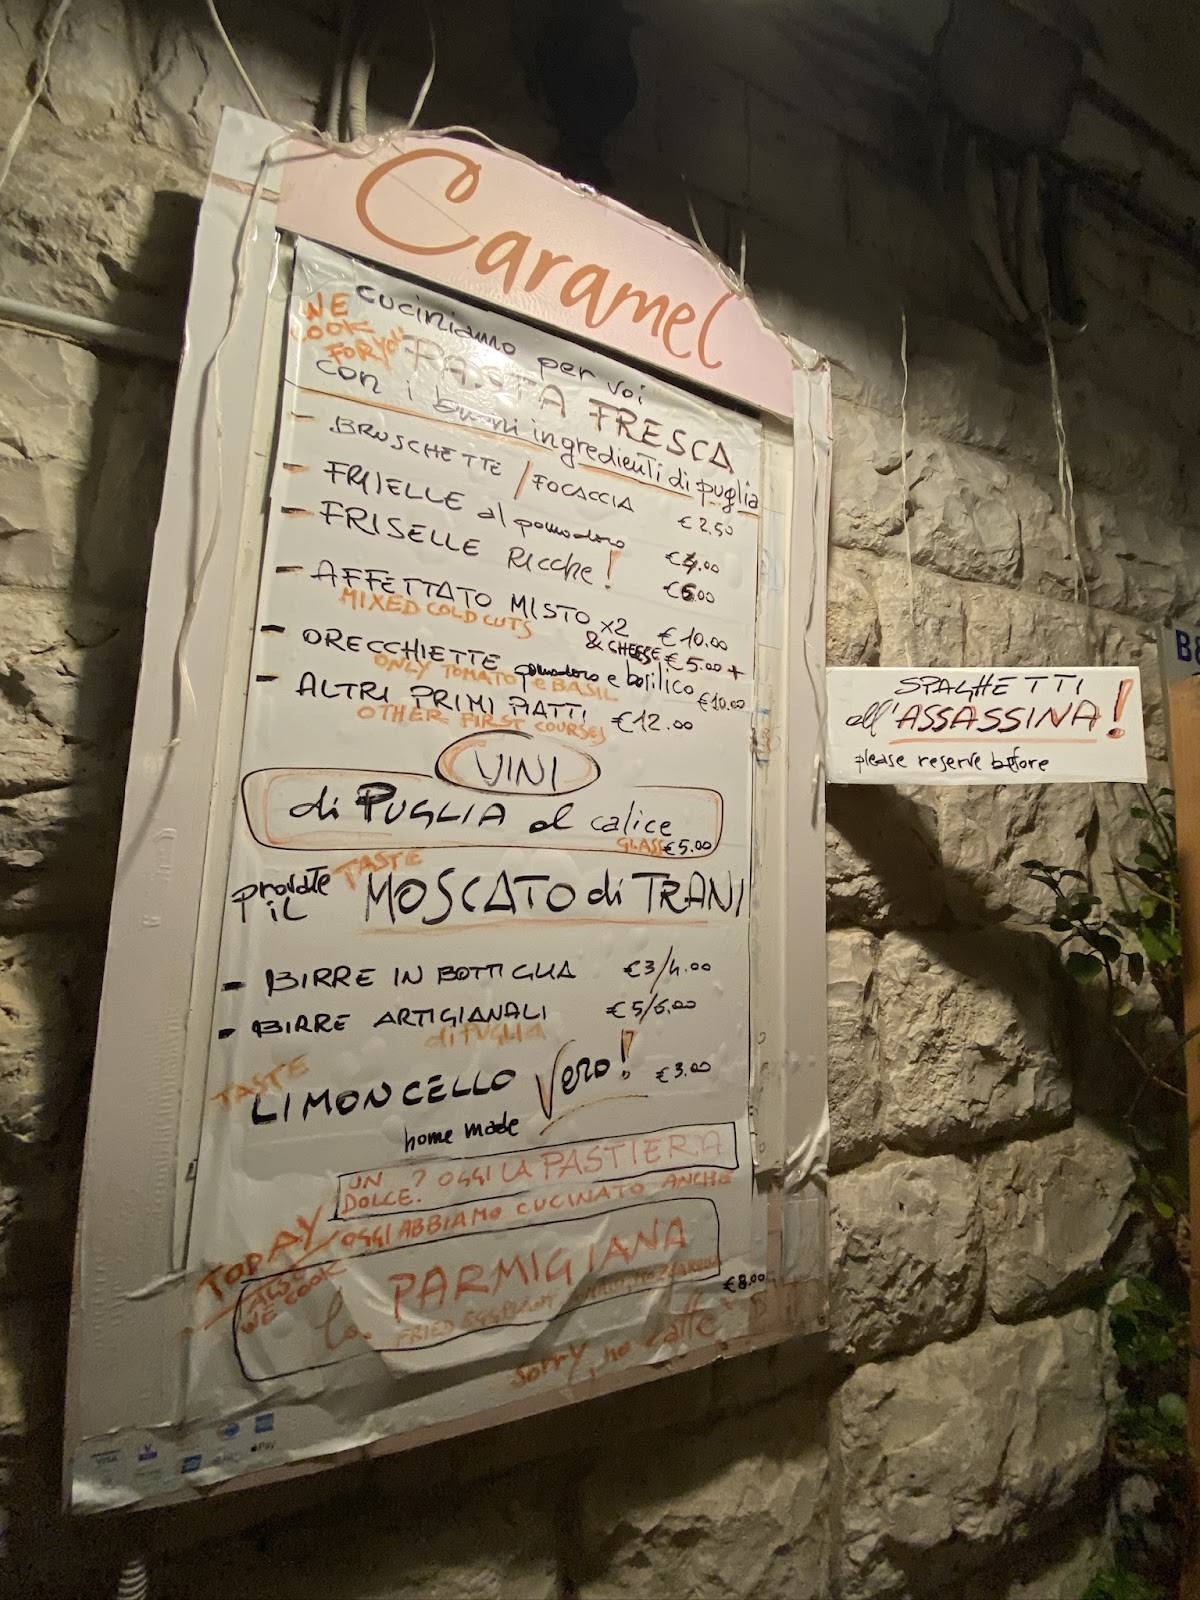 Caramel
WE
COOK
FOR YOU
cuciniamo per voi
PASTA FRESCA
con i buoni ingredienti di puglia
- BRUSCHETTE / FOCACCIA €2,50
- FRIIELLE al pomodoro €4.00
- FRISELLE RICChe! €6.00
- AFFETTATO MISTO x2 €10.00
MIXED COLD CUTS & CHEESE €5.00 +
- ORECCHIETTE pomodoro e basilico €10.00
ONLY TOMATO e BASIL
- ALTRI PRIMI PIATTI €12.00
OTHER FIRST COURSES
VINI
di PUGLIA al calice
GLASS €5.00
provate TASTE
il MOSCATO di TRANI
- BIRRE IN BOTTIGLIA €3/4.00
- BIRRE ARTIGIANALI €5/6.00
di PUGLIA
TASTE
LIMONCELLO Vero! €3.00
home made
UN DOLCE? OGGI LA PASTIERA
OGGI ABBIAMO CUCINATO ANCHE
TODAY
ALSO
WE COOK
la PARMIGIANA
FRIED EGGPLANT €8.00
sorry, no caffè
VISA
Pay
SPAGHETTI
all'ASSASSINA!
please reserve before